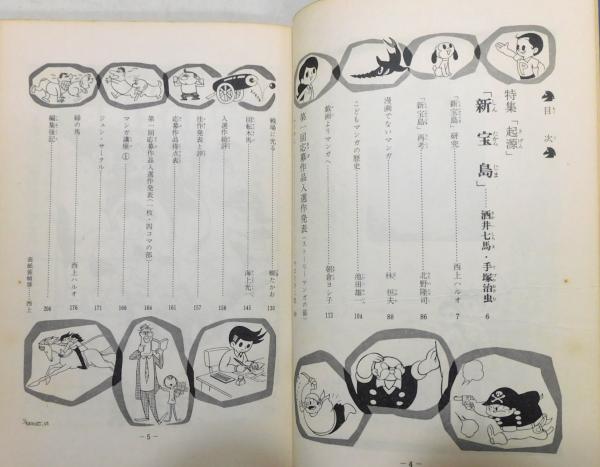 目次
特集「起源」
きげん
「新宝島」……酒井七馬・手塚治虫 6
「新宝島」研究……西上ハルオ 7
「新宝島」再考……北野隆司 86
漫画でないマンガ……林恒夫 88
こどもマンガの歴史……池田雄二 104
戯画よりマンガへ……朝倉ヨシ子 113
第一回応募作品入選作発表(ストーリーマンガの部)
戦場に光る 131
回転木馬……海上光一 145
入選作総評 156
佳作発表と評 157
応募作品採点表 161
第一回応募作品入選作発表(一枚・四コマの部) 164
マンガ講座① 166
ジュン・サークル 171
緑の馬……西上ハルオ 176
編集後記 206
— 5 —
— 4 —